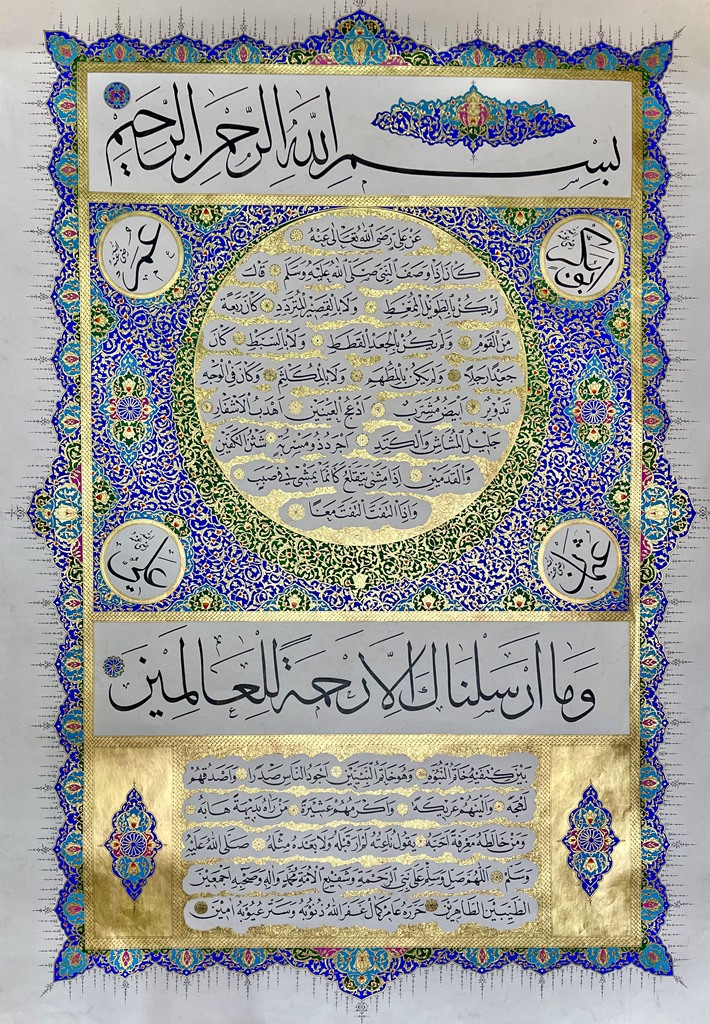 بِسْمِ اللّٰهِ الرَّحْمٰنِ الرَّحِيمِ
ابو بكر رضي الله عنه
عمر رضي الله عنه
عَنْ عَلِيٍّ رَضِيَ اللّٰهُ تَعَالَى عَنْهُ
كَانَ اِذَا وَصَفَ النَّبِيَّ صَلَّى اللّٰهُ عَلَيْهِ وَسَلَّمَ قَالَ
لم يكن بالطويل الممغط ولا بالقصير المتردد كان ربعة
من القوم ولم يكن بالجعد القطط ولا بالسبط كان
جعدا رجلا ولم يكن بالمطهم ولا بالمكلثم وكان في الوجه
تدوير ابيض مشرب ادعج العينين اهدب الاشفار
جليل المشاش والكتد اجرد ذو مسربة شثن الكفين
والقدمين اذا مشى يتقلع كانما يمشي في صبب
واذا التفت التفت معا
عثمان رضي الله عنه
علي رضي الله عنه
وَمَا اَرْسَلْنَاكَ اِلَّا رَحْمَةً لِلْعَالَمِينَ
بين كتفيه خاتم النبوة وهو خاتم النبيين اجود الناس صدرا واصدقهم
لهجة والينهم عريكة واكرمهم عشيرة من رآه بديهة هابه
ومن خالطه معرفة احبه يقول ناعته لم ار قبله ولا بعده مثله صلى الله عليه
وسلم اللهم صل وسلم على نبي الرحمة وشفيع الامة محمد وآله وصحبه اجمعين
الطيبين الطاهرين حرره كمال غفر الله ذنوبه وستر عيوبه امين